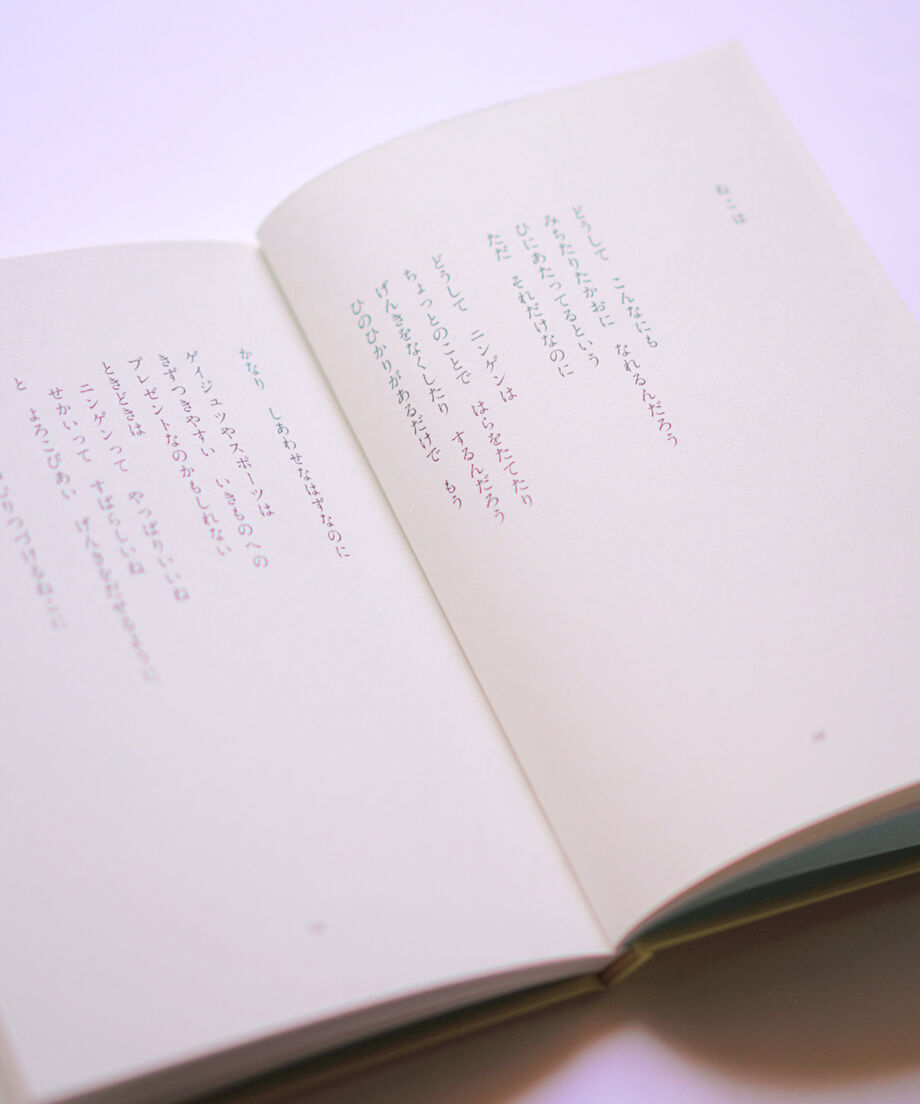 ねこは
どうして　こんなにも　なれるんだろう
みちたりたかおに
ひにあたってるという
ただ　それだけなのに
どうして　ニンゲンは　はらをたてたり
ちょっとのことで　するんだろう
げんきをなくしたり
ひのひかりがあるだけで　もう
かなり　しあわせなはずなのに
ゲイジュツやスポーツは
きずつきやすい　いきものへの
プレゼントなのかもしれない
ときどきは　やっぱりいいね
ニンゲンって　すばらしいね
せかいって　げんきをだせるように
と　よろこびあい
つづけるねこに